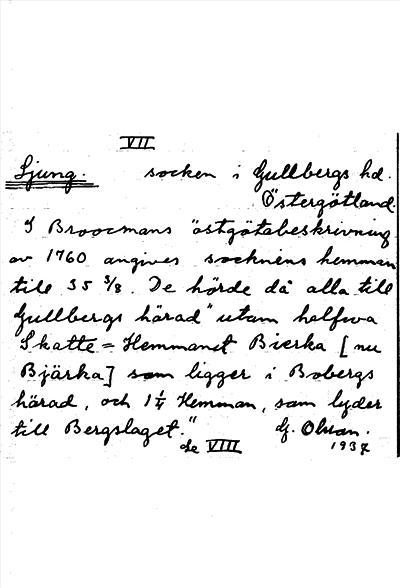 VII
Ljung. socken i Gullbergs hd.
Östergötland.
I Broocmans östgötabeskrivning
av 1760 angives socknens hemman
till 35 3/8. De hörde då alla till
Gullbergs härad "utom halfwa
Skatte=Hemmanet Bierka [nu
Bjärka] som ligger i Bobergs
härad, och 1 1/4 Hemman, som lyder
till Bergslaget."
df. Olsson.
1937
se VIII